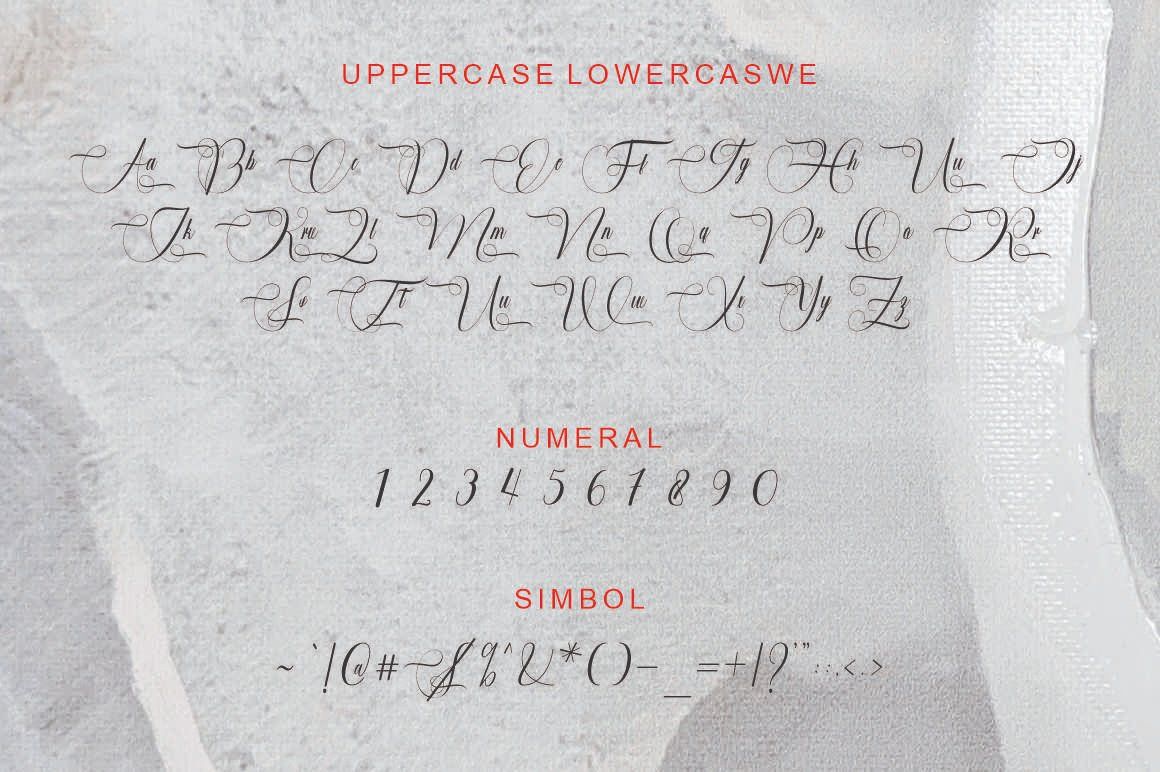 UPPERCASE LOWERCASWE
Aa Bb Cc Dd Ee Ff Gg Hh Uu
Ll Mm Nn Qq Pp Oo Rr
Ss Tt Uu Ww Xx Yy Zz
NUMERAL
1 2 3 4 5 6 7 8 9 0
SIMBOL
~ ` ! @ # $ % ^ & * ( ) - _ = + | ? ' " : ; , < . >